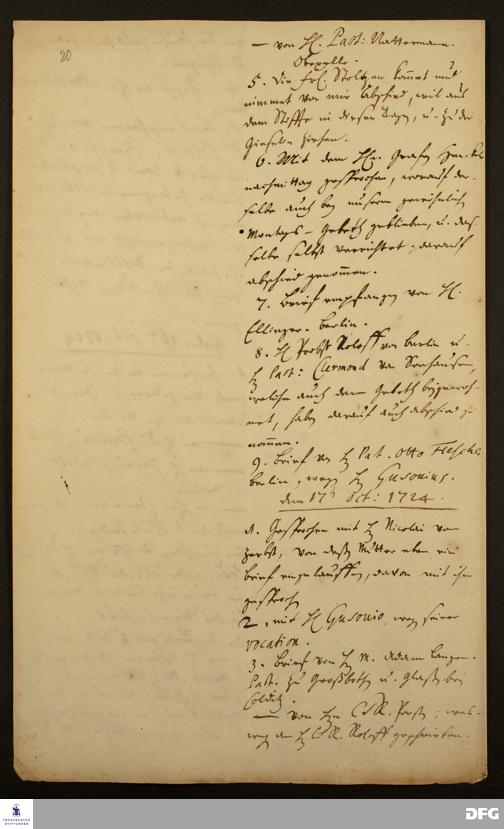 20
— von H. Past: Nattermann.
Obezelle.
5. Die Frl. Stoltzen kommt und
nimmet von mir Abschied, weil aus
dem Stiffte in diesen Tagen, u. zu der
ziehen.
6. Mit dem Hn. Grafen Henkel
nachmittag gesprochen, worauf der-
selbe auch bey unserm gewöhnlich
Montags-Gebeth geblieben, u. das-
selbe selbst verrichtet; darauf
abschied genommen.
7. Brief empfangen von H.
Ellinger. Berlin.
8. H Probst Roloff von Berlin u.
H Past: Clermond von Seehausen,
welche auch dem Gebeth beygewoh-
net, haben darauf auch abschied ge-
nommen.
9. Brief von H Pat. Otto
Berlin, wegen H Gusovius.
den 17 Oct: 1724.
1. Gesprochen mit H Nicolai von
Zerbst, von deßen Mutter eben ein
brief eingelauffen, davon mit ihm
gesprochen
2, mit H Gusovio, wegen seiner
vocation.
3. Brief von H M. Adam Langen.
Past. zu Großbothen u. Glasten bei
Colditz.
— von Hn C. R. Porst; wes-
wegen an H C. R. Roloff geschrieben.
FRANCKESCHE
STIFTUNGEN
DFG